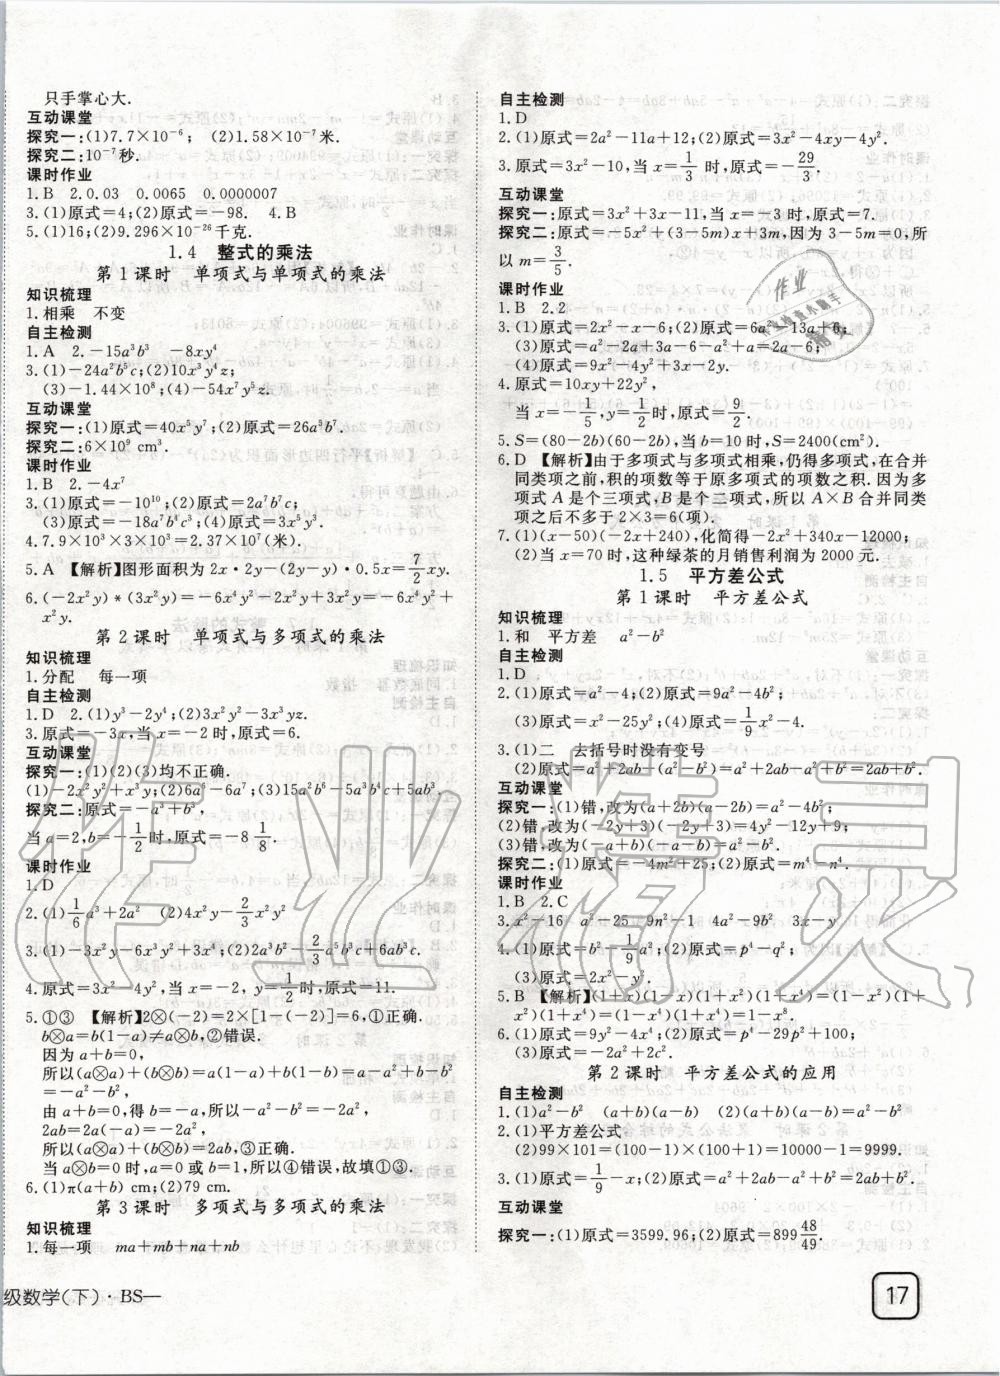 只手掌心大.
互动课堂
探究一:(1)7.7×10⁻⁶; (2)1.58×10⁻⁷米.
探究二:10⁻⁷秒.
课时作业
1.B 2.0.03 0.0065 0.0000007
3.(1)原式=4;(2)原式=-98. 4.B
5.(1)16;(2)9.296×10⁻²⁶千克.
1.4 整式的乘法
第1课时 单项式与单项式的乘法
知识梳理
1.相乘 不变
自主检测
1.A 2.-15a³b³ -8xy⁴
3.(1)-24a²b⁵c;(2)10x³y⁴z;
(3)-1.44×10⁸;(4)-54x⁷y⁵z.
互动课堂
探究一:(1)原式=40x⁵y⁷;(2)原式=26a⁹b⁷.
探究二:6×10⁹ cm³.
课时作业
1.B 2.-4x⁷
3.(1)原式=-10¹⁰;(2)原式=2a⁷b⁷c;
(3)原式=-18a⁷b⁴c³;(4)原式=3x⁵y³.
4.7.9×10³×3×10³=2.37×10⁷(米).
5.A 【解析】图形面积为2x·2y-(2y-y)·0.5x=7/2xy.
6.(-2x²y)*(3x²y)=-6x⁴y²-2x²y+3x²y=-6x⁴y²+
x²y.
第2课时 单项式与多项式的乘法
知识梳理
1.分配 每一项
自主检测
1.D 2.(1)y³-2y⁴;(2)3x²y²-3x³yz.
3.原式=-3x;当x=-2时,原式=6.
互动课堂
探究一:(1)(2)(3)均不正确.
(1)-2x²y²+x³y;(2)6a⁵-6a⁷;(3)15a²b³-5a³b⁴c+5ab³.
探究二:原式=-a³+b³,
当a=2,b=-1/2时,原式=-8 1/8.
课时作业
1.D
2.(1)1/6a³+2a² (2)4x²y-2/3x²y²
3.(1)-3x²y-6x³y²+3x⁴;(2)2a³b²-2/3a⁵b³c+6ab³c.
4.原式=3x²-4y²,当x=-2,y=1/2时,原式=11.
5.①③ 【解析】2⊗(-2)=2×[1-(-2)]=6,①正确.
b⊗a=b(1-a)≠a⊗b,②错误.
因为a+b=0,
所以(a⊗a)+(b⊗b)=a(1-a)+b(1-b)=a-a²+b-b²
=-a²-b²,
由a+b=0,得b=-a,所以-a²-b²=-2a²,
2ab=2a(-a)=-2a²,
所以(a⊗a)+(b⊗b)=2ab,③正确.
当a⊗b=0时,a=0或b=1,所以④错误,故填①③.
6.(1)π(a+b) cm;(2)79 cm.
第3课时 多项式与多项式的乘法
知识梳理
1.每一项 ma+mb+na+nb
级数学(下)·BS—
自主检测
1.D
2.(1)原式=2a²-11a+12;(2)原式=3x²-4xy-4y².
3.原式=3x²-10,当x=1/3时,原式=-29/3.
互动课堂
探究一:原式=3x²+3x-11,当x=-3时,原式=7.
探究二:原式=-5x²+(3-5m)x+3m,因为3-5m=0,所
以m=3/5.
课时作业
1.B 2.2
3.(1)原式=2x²-x-6;(2)原式=6a²-13a+6;
(3)原式=a²-2a+3a-6-a²+a=2a-6;
(4)原式=9x²-4y²+3x-2y.
4.原式=10xy+22y²,
当x=-1/5,y=1/2时,原式=9/2.
5.S=(80-2b)(60-2b),当b=10时,S=2400(cm²).
6.D 【解析】由于多项式与多项式相乘,仍得多项式,在合并
同类项之前,积的项数等于原多项式的项数之积.因为多
项式A是个三项式,B是个二项式,所以A×B合并同类
项之后不多于2×3=6(项).
7.(1)(x-50)(-2x+240),化简得-2x²+340x-12000;
(2)当x=70时,这种绿茶的月销售利润为2000元.
1.5 平方差公式
第1课时 平方差公式
知识梳理
1.和 平方差 a²-b²
自主检测
1.D
2.(1)原式=a²-4;(2)原式=9a²-4b²;
(3)原式=x²-25y²;(4)原式=1/9x²-4.
3.(1)二 去括号时没有变号
(2)原式=a²+2ab-(a²-b²)=a²+2ab-a²+b²=2ab+b².
互动课堂
探究一:(1)错,改为(a+2b)(a-2b)=a²-4b²;
(2)错,改为(-2y+3)(-2y+3)=4y²-12y+9;
(3)错,改为(-a+b)(-a-b)=a²-b².
探究二:(1)原式=-4m²+25;(2)原式=m⁴-n⁴.
课时作业
1.B 2.C
3.x²-16 a²-25 9n²-1 4a²-9b² 3x-y
4.(1)原式=b²-1/9a²;(2)原式=p⁴-q²;
(3)原式=2x²-y².
5.B 【解析】(1+x)(1-x)(1+x²)(1+x⁴)=(1-x²)(1+
x²)(1+x⁴)=(1-x⁴)(1+x⁴)=1-x⁸.
6.(1)原式=9y²-4x⁴;(2)原式=p⁴-29p²+100;
(3)原式=-2a²+2c².
第2课时 平方差公式的应用
自主检测
1.(1)a²-b² (a+b)(a-b) (2)(a+b)(a-b)=a²-b²
2.(1)平方差公式
(2)99×101=(100-1)(100+1)=10000-1=9999.
3.(1)原式=1/9-x;(2)原式=a²+2ab-a²+b²=2ab+b².
互动课堂
探究一:(1)原式=3599.96;(2)原式=899 48/49.
17
作业
作业精灵